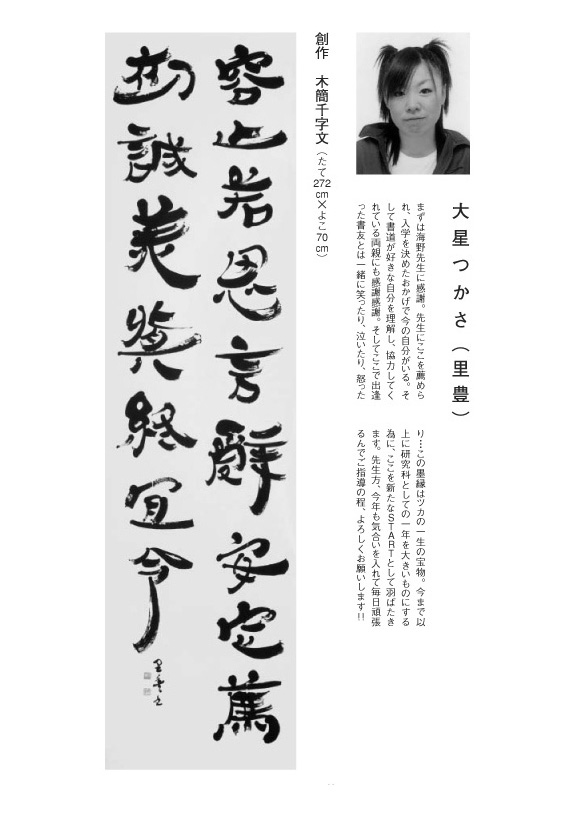 大星つかさ（里豊）
まずは海野先生に感謝。先生にここを薦めら
れ、入学を決めたおかげで今の自分がいる。そ
して書道が好きな自分を理解し、協力してく
れている両親にも感謝感謝。そしてここで出逢
った書友とは一緒に笑ったり、泣いたり、怒った
り…この墨縁はツカの一生の宝物。今まで以
上に研究科としての一年を大きいものにする
為に、ここを新たなSTARTとして羽ばたき
ます。先生方、今年も気合いを入れて毎日頑張
るんでご指導の程、よろしくお願いします!!
創作　木簡千字文（たて272cm×よこ70cm）
容止若思言辭安定篤
初誠美慎終宜令